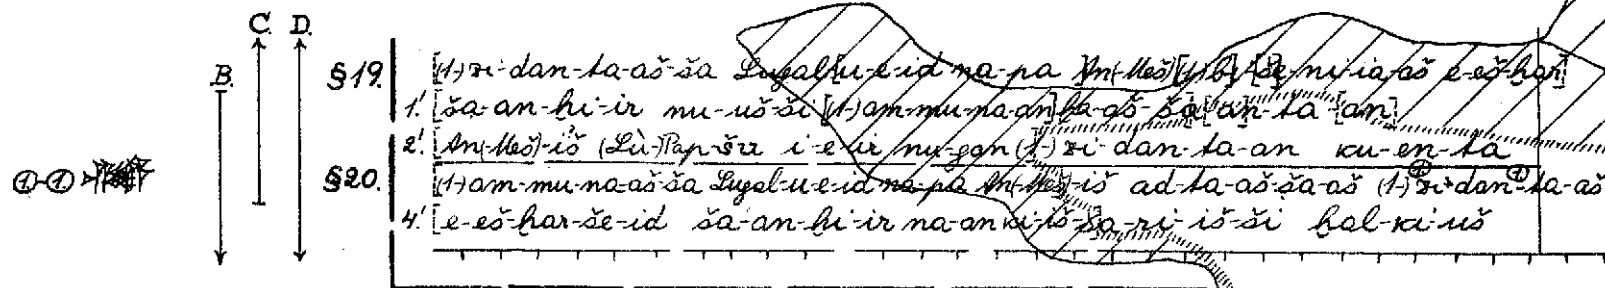 C. D.
B.
§19. [(1-)zi-dan-ta-aš-ša Lugal[u-e-id na-pa An(-Meš)[(1-)b] [še-ni-ia-aš e-eš-ḫar]
1'. [ša-an-ḫi-ir nu-uš-ši [(1-)am-mu-na-an] ḫa-aš-ša[an-ta[an]
2'. An(-Meš)-iš (Lù-)Pap-šu i-e-ir nu-gan (1-)zi-dan-ta-an ku-en-ta
§20. (1-)am-mu-na-aš-ša Lugal-u-e-id na-pa An(-Meš)-iš ad-ta-aš-ša-aš (1-)zi-dan-ta-aš
4'. [e-eš-ḫar-še-id ša-an-ḫi-ir na-an ki-iš-ša-ri-iš-ši ḫal-ki-uš
①-①